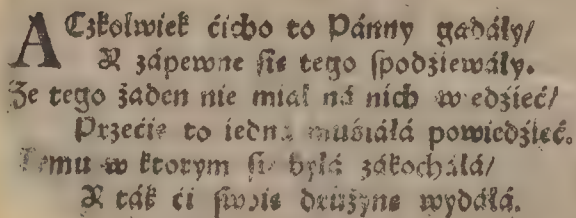 ACzkolwiek ćicho to Pánny gadáły/
A zápewne sie tego spodźiewáły.
Ze tego żaden nie miał ná nich wiedźieć/
Przećię to iedná muśiáłá powiedźieć.
Temu w ktorym się byłá zákocháłá/
A ták ći swoię drużynę wydáłá.